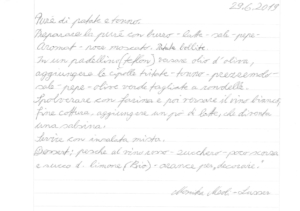 29.6.2019
Purè di patate e tonno
Preparare la purè con burro - latte - sale - pepe -
Aromat - noce moscata. Patate bollite.
In un padellino (teflon) versare olio d'oliva,
aggiungere la cipolla tritata - tonno - prezzemolo -
sale - pepe - olive verdi tagliate a rondelle.
Spolverare con farina e poi versare il vino bianco,
fine cottura, aggiungere un po' di latte, che diventa
una salsina.
Servire con insalata mista.
Dessert: pesche al vino rosso - zucchero - poco
e succo di limone (Bio) - per decorare!